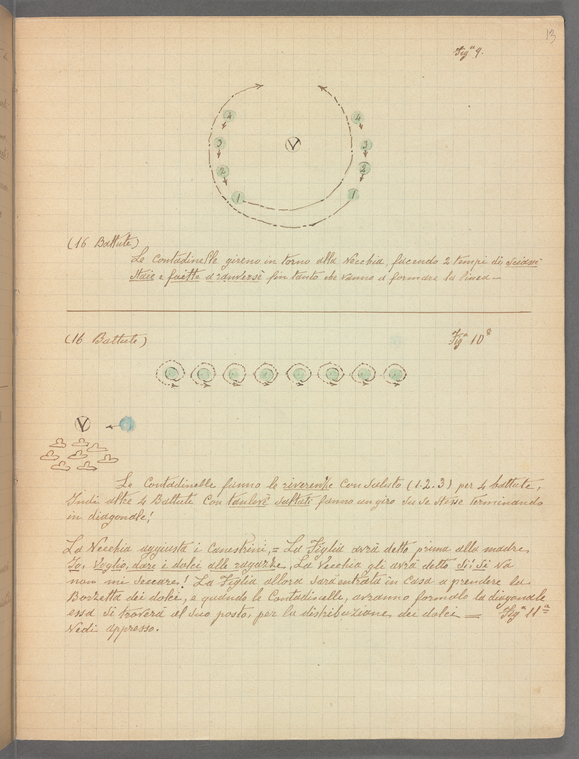 13
Fig.ª 9.
4 4
V
3 3
2 2
1 1
(16 Battute)
Le Contadinelle gireno in torno alla Vecchia facendo 2 tempi di
e fuetté d'ranversé fin tanto che vanno a formare la linea
(16 Battute) Fig.ª 10ª
V
Le Contadinelle funno le riverenze con saluto (1.2.3) per 4 battute,
Indi altre 4 Battute con tamburé saltati fanno un giro su se stesse terminando
in diagonale!
La Vecchia aggiusta i Canestrini, = La Figlia avrà detto prima alla madre
Io, Voglio, dare i dolci alle ragazze, La Vecchia gli avrà detto Si Si va
non mi seccare! La Figlia allora sarà entrata in Casa a prendere la
Borzetta dei dolci, e quando le Contadinelle, avranno formato la diagonale
essa si troverà al suo posto, per la distribuzione dei dolci = Fig.ª 11ª
Vedi appresso.